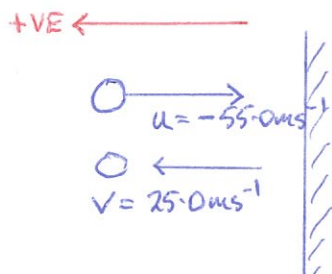 +VE
u = -55.0ms⁻¹
v = 25.0ms⁻¹